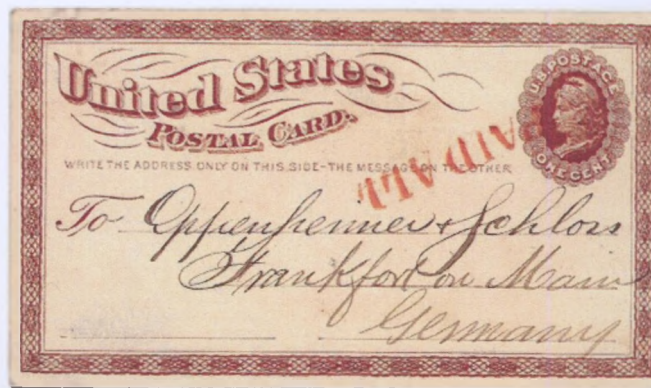 United States
POSTAL CARD.
U.S. POSTAGE
ONE CENT
WRITE THE ADDRESS ONLY ON THIS SIDE-THE MESSAGE ON THE OTHER
PAID ALL
To Oppenheimer & Schloss
Frankfort on Main
Germany